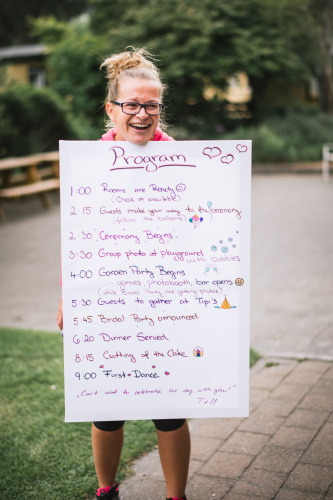 Program
1:00 Rooms are Ready
(check in available)
2:15 Guests make your way to the ceremony
(follow the balloons)
2:30 Ceremony Begins
3:30 Group photo at playground
with bubbles
4:00 Garden Party Begins
- games, photobooth, bar opens
(while Bridal Party are getting photos)
5:30 Guests to gather at Tipi's
5:45 Bridal Party announced
6:20 Dinner Served
8:15 Cutting of the Cake
9:00 First Dance
"Can't wait to celebrate our day with you!"